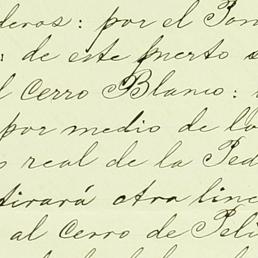 deros: por el Pon
: de este puerto s
l Cerro Blanco:
por medio de lo
s real de la Ped
tirará otra line
al Cerro de Peli